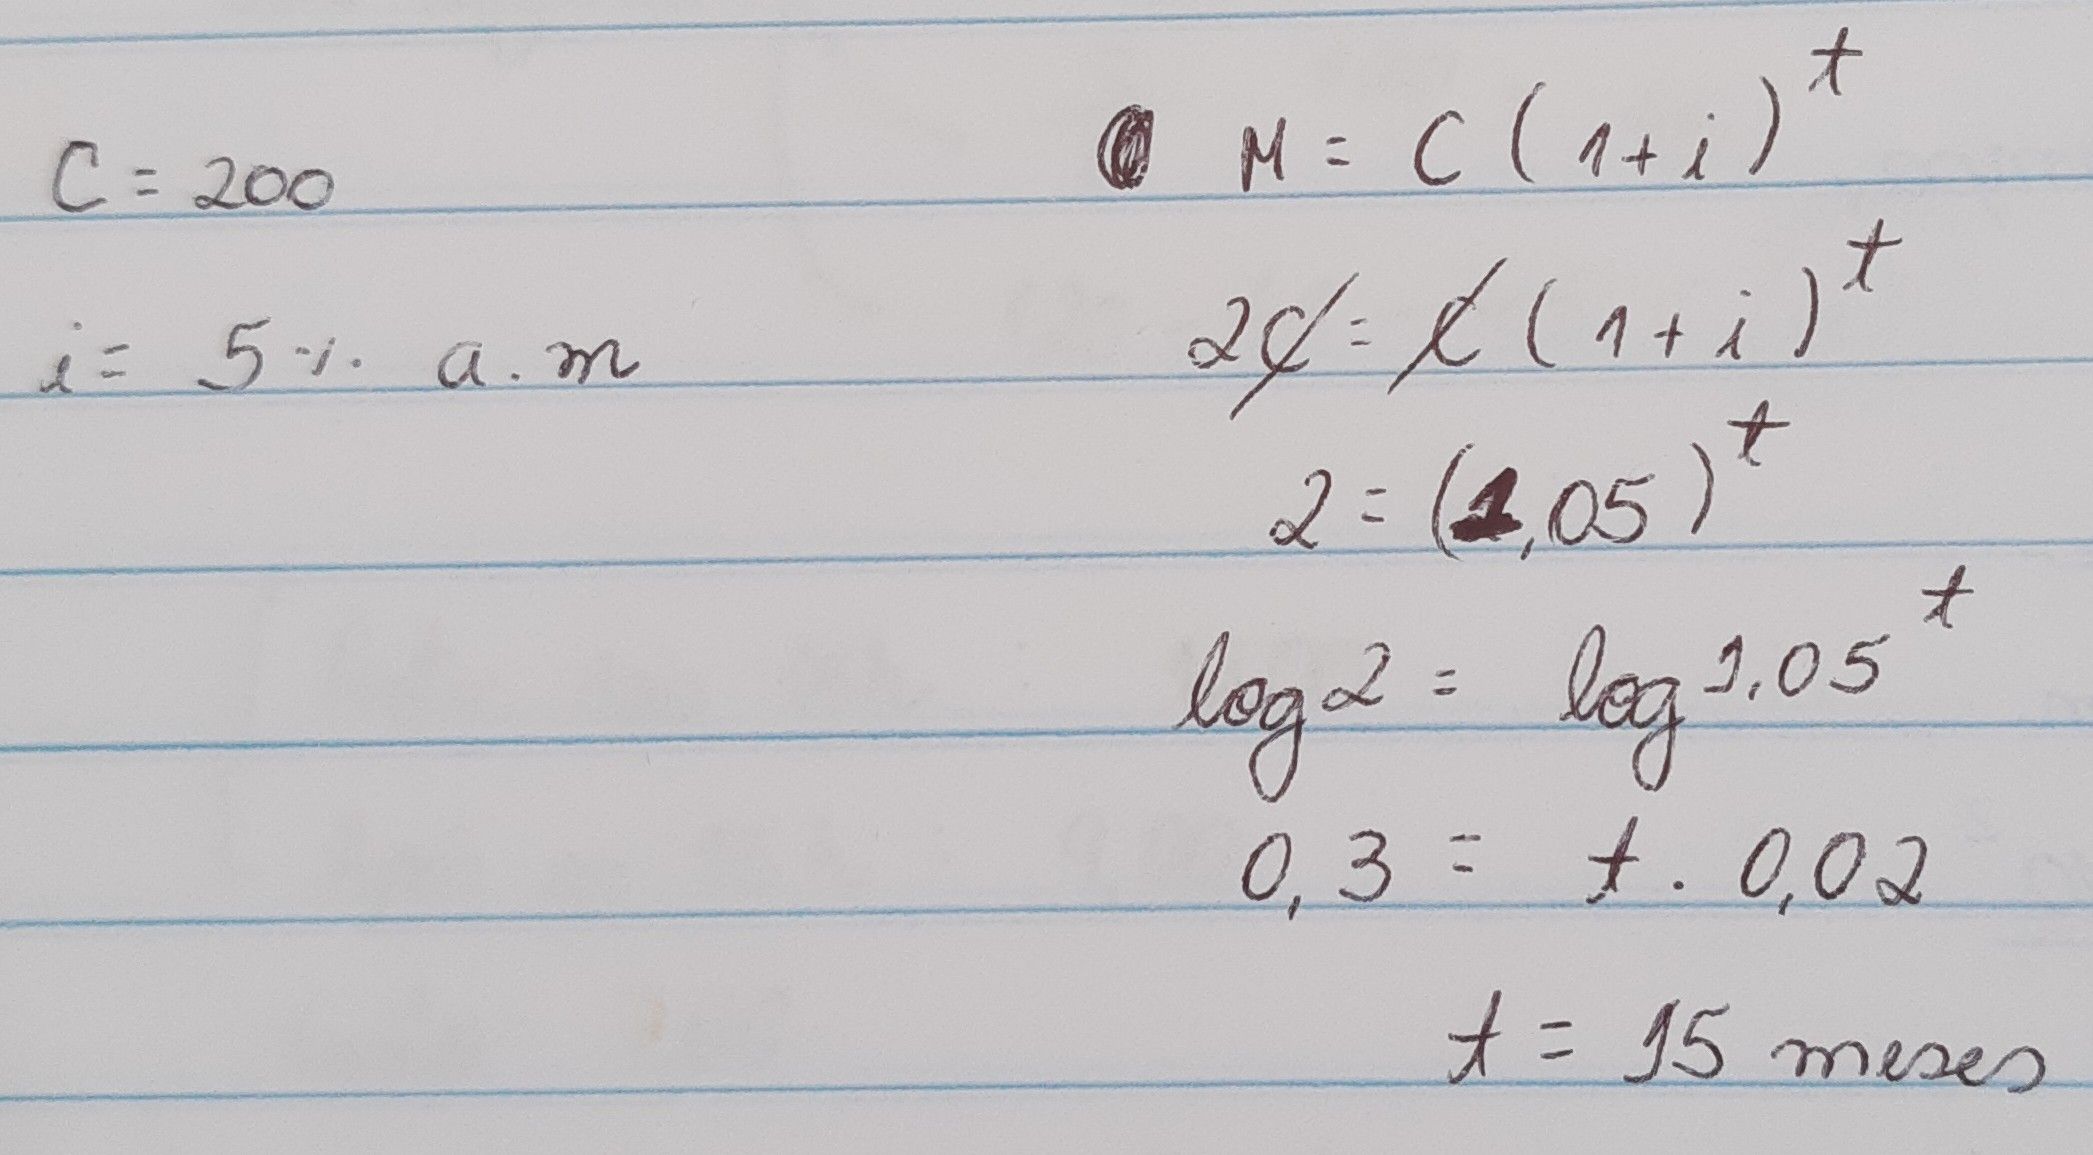 C = 200
i = 5 % a.m
M = C (1+i)^t
2C = C (1+i)^t
2 = (1,05)^t
log 2 = log 1,05^t
0,3 = t . 0,02
t = 15 meses